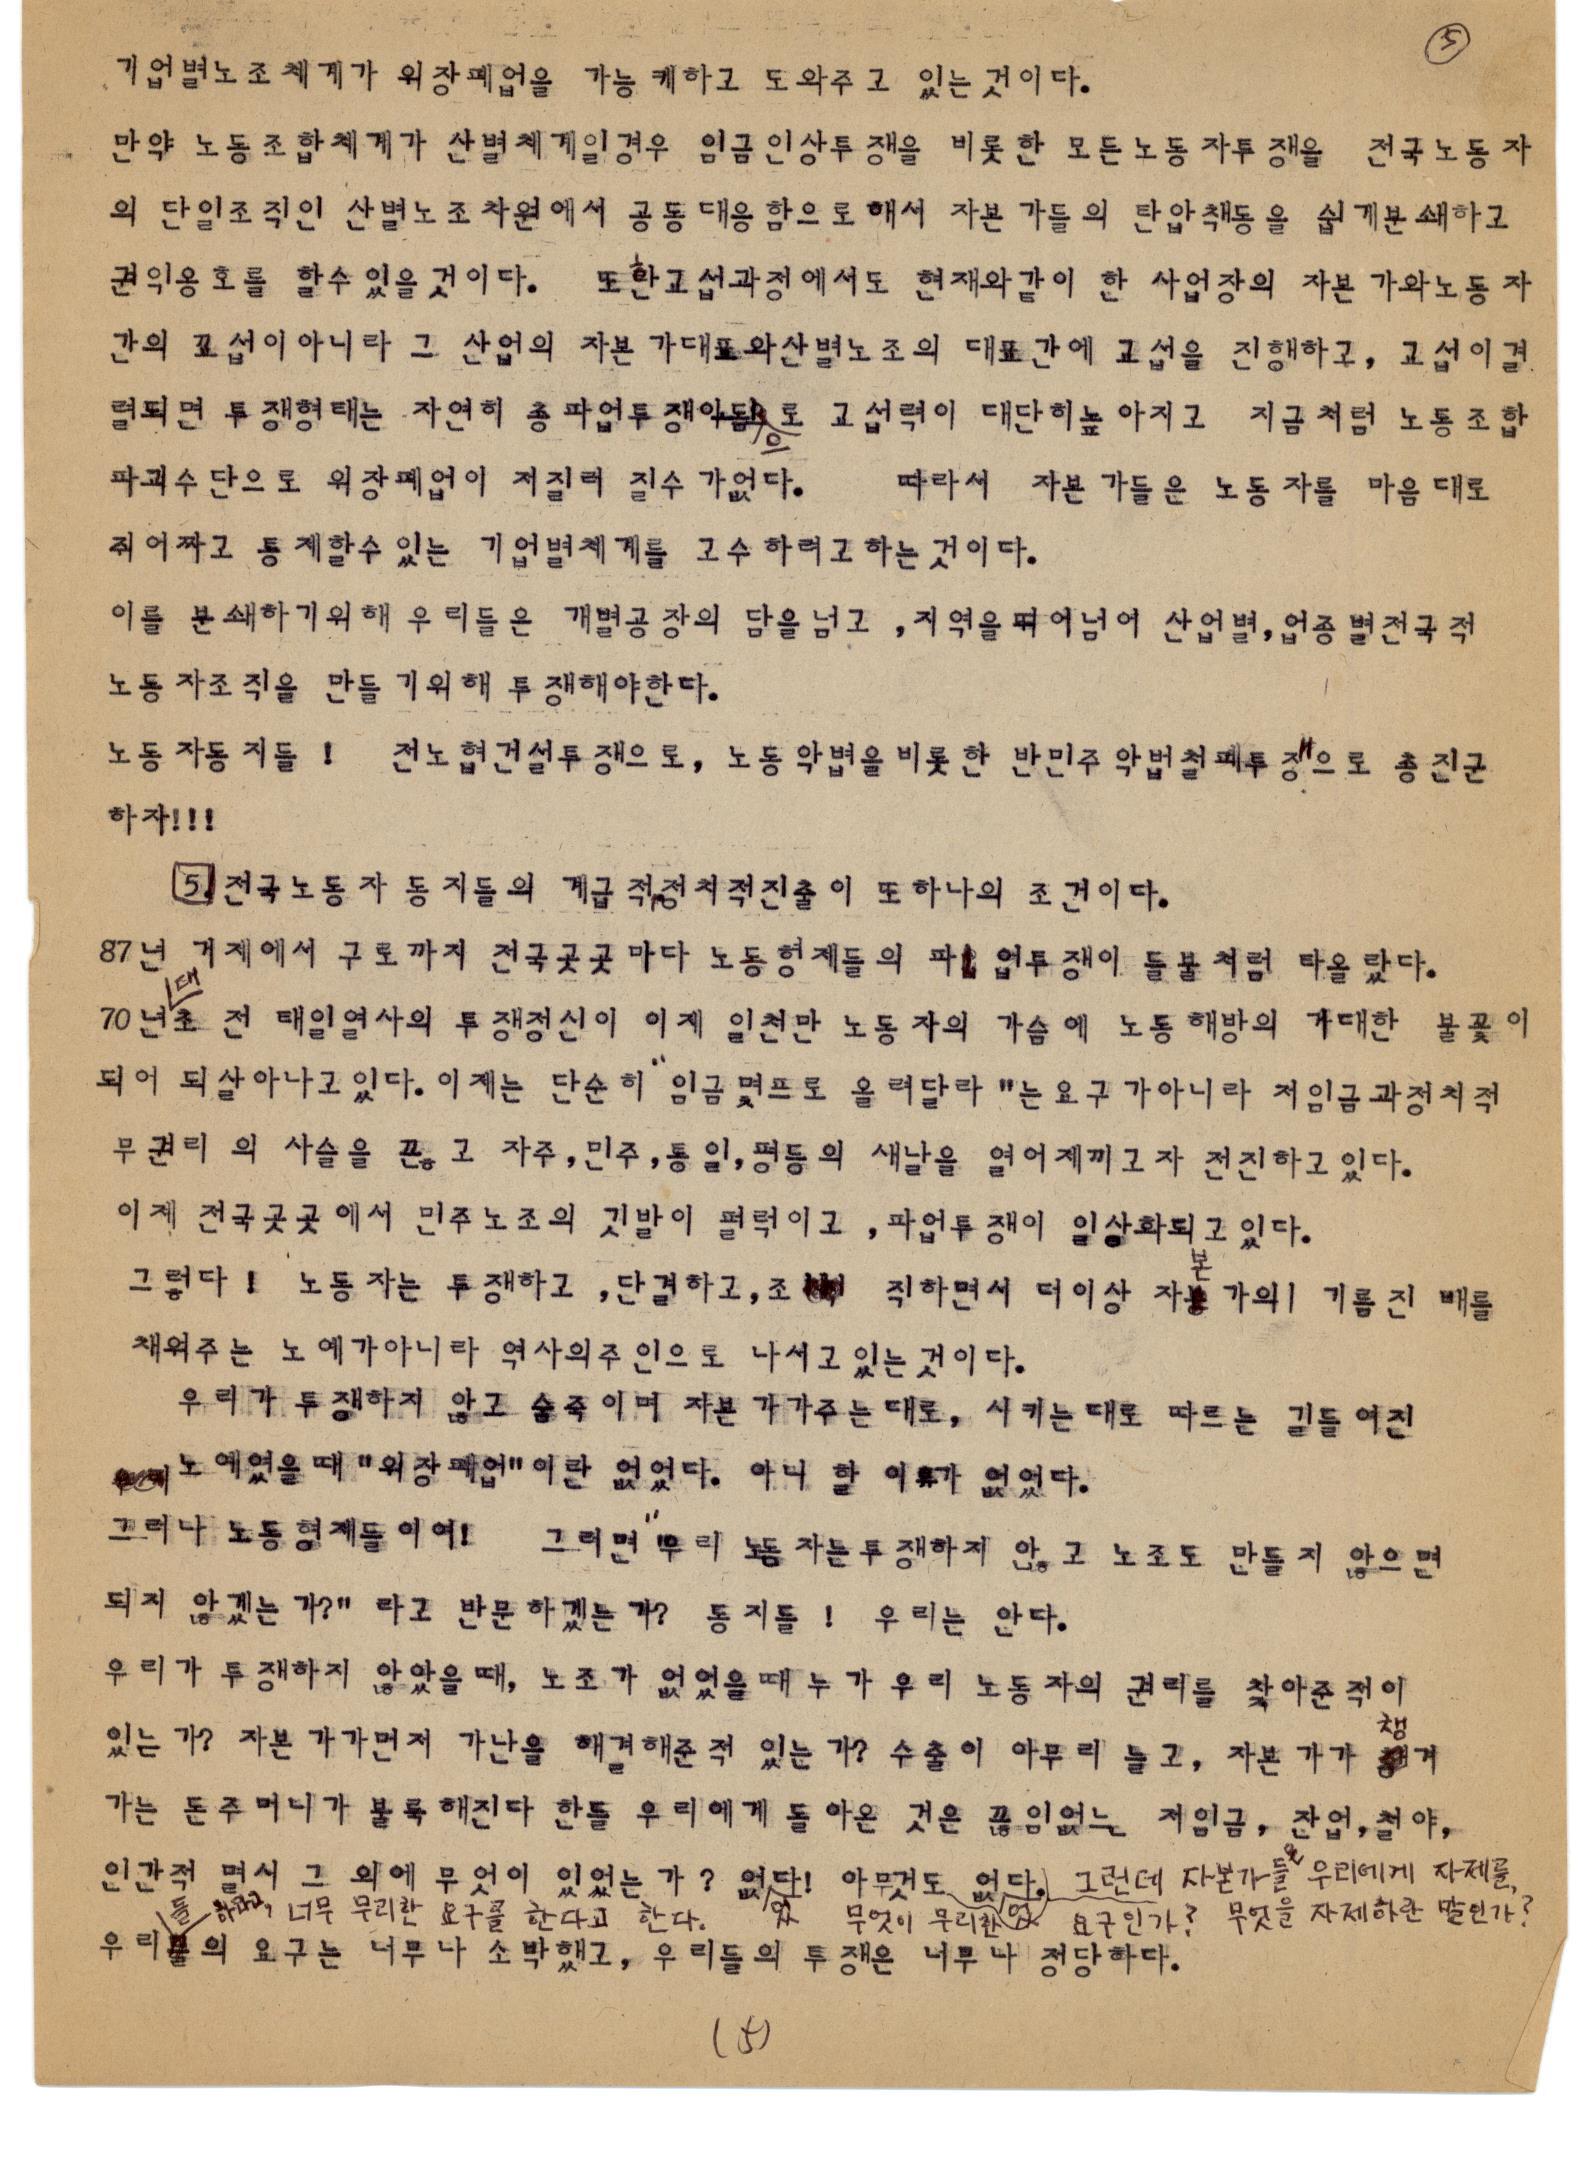 5
기업별노조체계가 위장폐업을 가능케하고 도와주고 있는것이다.
만약 노동조합체계가 산별체계일경우 임금인상투쟁을 비롯한 모든노동자투쟁을 전국노동자
의 단일조직인 산별노조차원에서 공동대응함으로해서 자본가들의 탄압책동을 쉽게분쇄하고
권익옹호를 할수있을것이다. 또한교섭과정에서도 현재와같이 한 사업장의 자본가와노동자
간의 교섭이아니라 그 산업의 자본가대표와산별노조의 대표간에 교섭을 진행하고, 교섭이결
렬되면 투쟁형태는 자연히 총파업투쟁으로 교섭력이 대단히높아지고 지금처럼 노동조합
파괴수단으로 위장폐업이 저질러 질수가없다. 따라서 자본가들은 노동자를 마음대로
쥐어짜고 통제할수있는 기업별체계를 고수하려고하는것이다.
이를 분쇄하기위해 우리들은 개별공장의 담을넘고 ,지역을뛰어넘어 산업별,업종별전국적
노동자조직을 만들기위해 투쟁해야한다.
노동자동지들 ! 전노협건설투쟁으로, 노동악법을비롯한 반민주악법철폐투쟁"으로 총진군
하자!!!
5. 전국노동자 동지들의 계급적,정치적진출이 또하나의 조건이다.
87년 거제에서 구로까지 전국곳곳마다 노동형제들의 파업투쟁이 들불처럼 타올랐다.
70년대 전태일열사의 투쟁정신이 이제 일천만 노동자의 가슴에 노동해방의 거대한 불꽃이
되어 되살아나고있다. 이제는 단순히 "임금몇프로 올려달라 "는요구가아니라 저임금과정치적
무권리 의 사슬을 끊고 자주,민주,통일,평등의 새날을 열어제끼고자 전진하고있다.
이제 전국곳곳에서 민주노조의 깃발이 펄럭이고 ,파업투쟁이 일상화되고있다.
그렇다 ! 노동자는 투쟁하고 ,단결하고,조직하면서 더이상 자본가의 기름진 배를
채워주는 노예가아니라 역사의주인으로 나서고있는것이다.
우리가 투쟁하지 않고 숨죽이며 자본가가주는대로, 시키는대로 따르는 길들여진
노예였을때 "위장폐업"이란 없었다. 아니 할 이유가 없었다.
그러나 노동형제들이여! 그러면 "우리 노동자는투쟁하지 않고 노조도 만들지 않으면
되지 않겠는가?" 라고 반문하겠는가? 동지들 ! 우리는 안다.
우리가 투쟁하지 않았을때, 노조가 없었을때 누가 우리 노동자의 권리를 찾아준적이
있는가? 자본가가먼저 가난을 해결해준적 있는가? 수출이 아무리 늘고, 자본가가 챙겨
가는 돈주머니가 불룩해진다 한들 우리에게 돌아온 것은 끊임없는 저임금, 잔업,철야,
인간적 멸시 그 외에 무엇이 있었는가? 없다! 아무것도 없다. 그런데 자본가들은 우리에게 자제를,
하라고, 너무 무리한 요구를 한다고 한다. 무엇이 무리한 요구인가? 무엇을 자제하란 말인가?
우리들의 요구는 너무나 소박했고, 우리들의 투쟁은 너무나 정당하다.
(5)